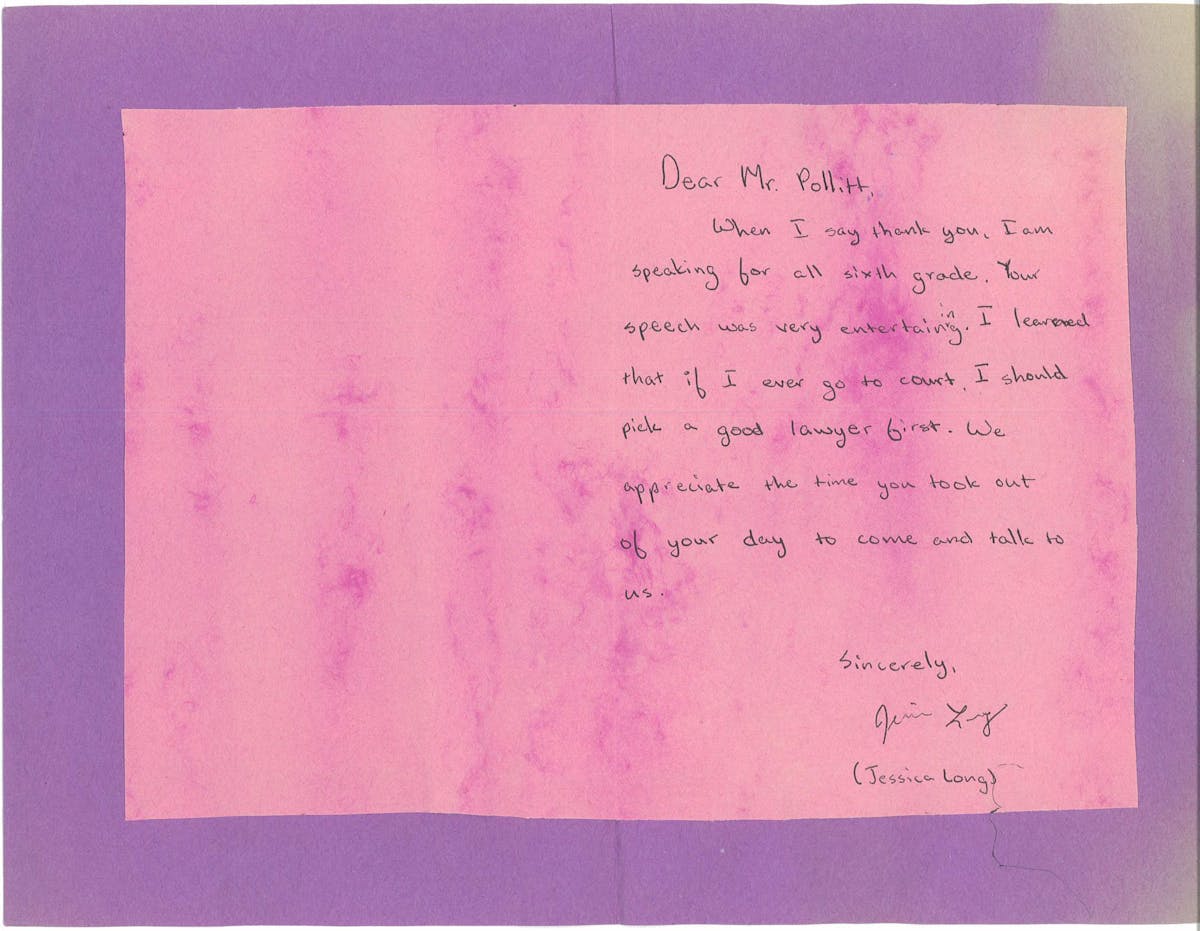 Dear Mr. Pollitt,
When I say thank you, I am
speaking for all sixth grade. Your
speech was very entertaining. I learned
that if I ever go to court, I should
pick a good lawyer first. We
appreciate the time you took out
of your day to come and talk to
us.
Sincerely,
(Jessica Long)